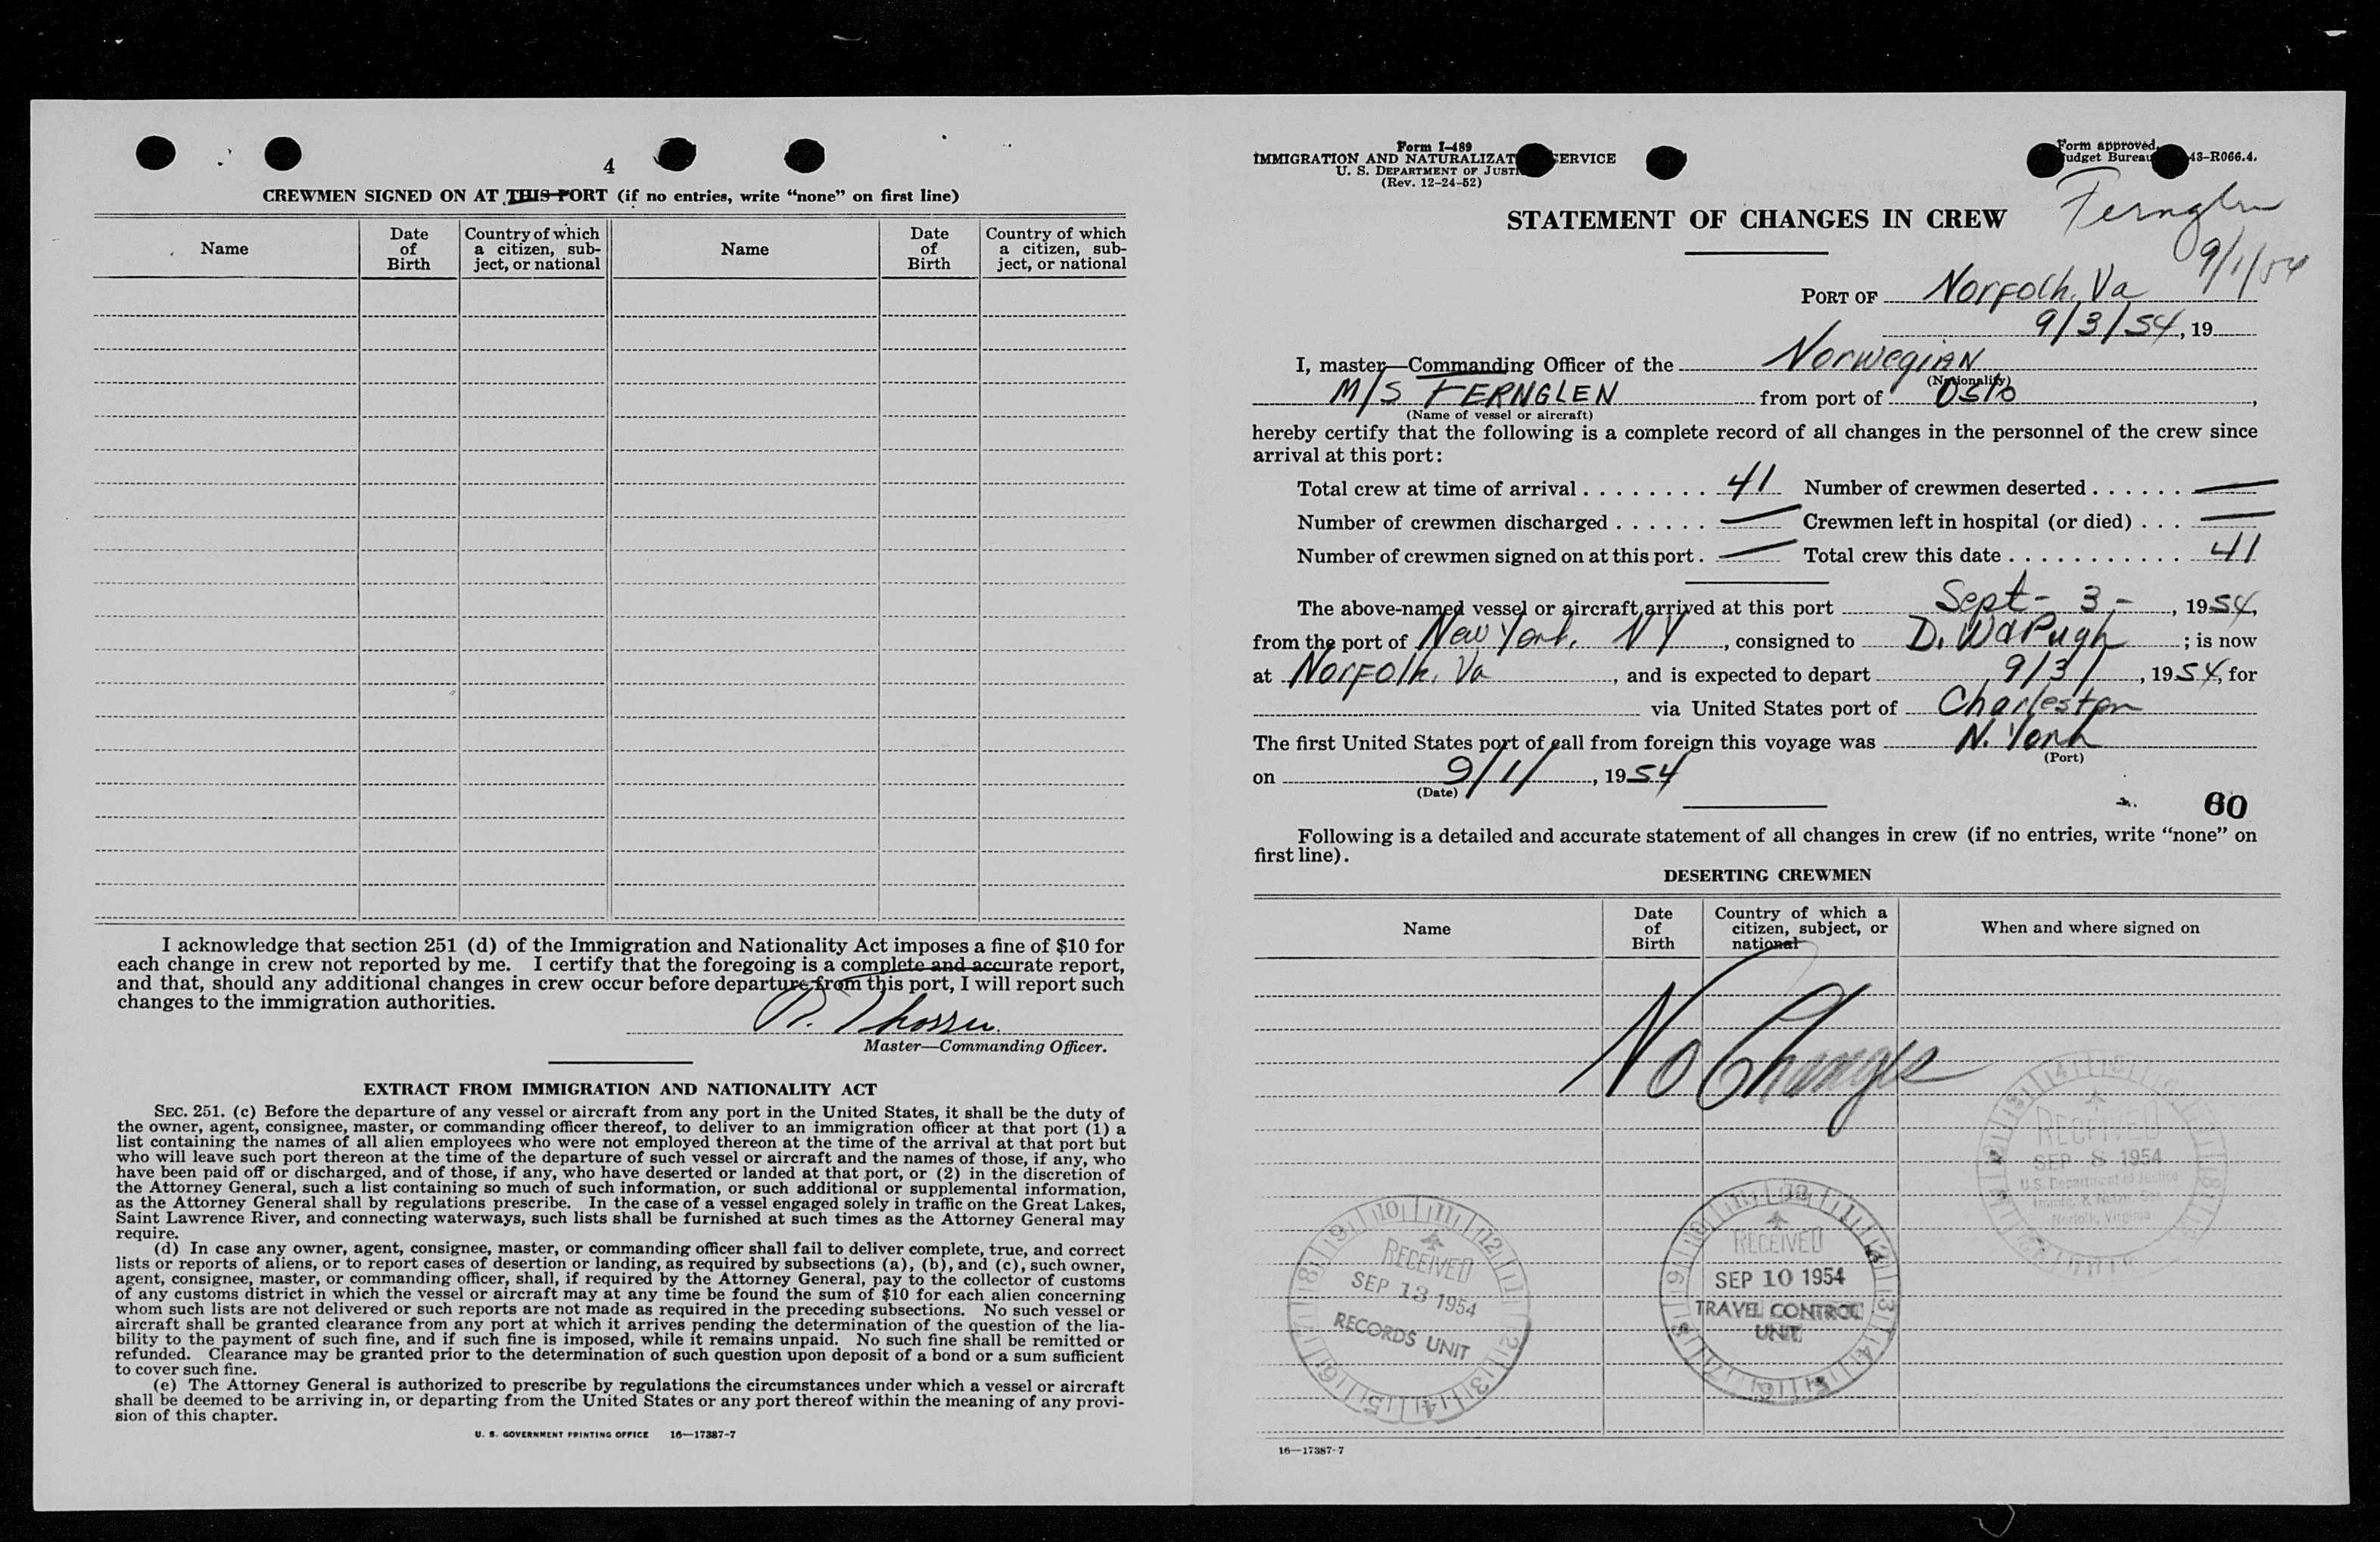 4
CREWMEN SIGNED ON AT THIS PORT (if no entries, write "none" on first line)
Name
Date of Birth
Country of which a citizen, sub-ject, or national
Name
Date of Birth
Country of which a citizen, sub-ject, or national
I acknowledge that section 251 (d) of the Immigration and Nationality Act imposes a fine of $10 for
each change in crew not reported by me. I certify that the foregoing is a complete and accurate report,
and that, should any additional changes in crew occur before departure from this port, I will report such
changes to the immigration authorities.
Master—Commanding Officer.
EXTRACT FROM IMMIGRATION AND NATIONALITY ACT
SEC. 251. (c) Before the departure of any vessel or aircraft from any port in the United States, it shall be the duty of
the owner, agent, consignee, master, or commanding officer thereof, to deliver to an immigration officer at that port (1) a
list containing the names of all alien employees who were not employed thereon at the time of the arrival at that port but
who will leave such port thereon at the time of the departure of such vessel or aircraft and the names of those, if any, who
have been paid off or discharged, and of those, if any, who have deserted or landed at that port, or (2) in the discretion of
the Attorney General, such a list containing so much of such information, or such additional or supplemental information,
as the Attorney General shall by regulations prescribe. In the case of a vessel engaged solely in traffic on the Great Lakes,
Saint Lawrence River, and connecting waterways, such lists shall be furnished at such times as the Attorney General may
require.
(d) In case any owner, agent, consignee, master, or commanding officer shall fail to deliver complete, true, and correct
lists or reports of aliens, or to report cases of desertion or landing, as required by subsections (a), (b), and (c), such owner,
agent, consignee, master, or commanding officer, shall, if required by the Attorney General, pay to the collector of customs
of any customs district in which the vessel or aircraft may at any time be found the sum of $10 for each alien concerning
whom such lists are not delivered or such reports are not made as required in the preceding subsections. No such vessel or
aircraft shall be granted clearance from any port at which it arrives pending the determination of the question of the lia-
bility to the payment of such fine, and if such fine is imposed, while it remains unpaid. No such fine shall be remitted or
refunded. Clearance may be granted prior to the determination of such question upon deposit of a bond or a sum sufficient
to cover such fine.
(e) The Attorney General is authorized to prescribe by regulations the circumstances under which a vessel or aircraft
shall be deemed to be arriving in, or departing from the United States or any port thereof within the meaning of any provi-
sion of this chapter.
U. S. GOVERNMENT PRINTING OFFICE 16—17387-7
Form I-489
IMMIGRATION AND NATURALIZAT SERVICE
U. S. DEPARTMENT OF JUSTI
(Rev. 12-24-52)
Form approved.
udget Bureau 43-R066.4.
Fernglen
9/1/54
STATEMENT OF CHANGES IN CREW
PORT OF Norfolk, Va
9/3/54, 19
I, master—Commanding Officer of the Norwegian
(Nationality)
M/S FERNGLEN from port of Oslo,
(Name of vessel or aircraft)
hereby certify that the following is a complete record of all changes in the personnel of the crew since
arrival at this port:
Total crew at time of arrival 41 Number of crewmen deserted —
Number of crewmen discharged — Crewmen left in hospital (or died) —
Number of crewmen signed on at this port — Total crew this date 41
The above-named vessel or aircraft arrived at this port Sept - 3 -, 1954,
from the port of New York, NY, consigned to D. Pugh; is now
at Norfolk, Va, and is expected to depart 9/3/, 1954, for
via United States port of Charleston
The first United States port of call from foreign this voyage was N. York
(Port)
on 9/1/, 1954
(Date)
60
Following is a detailed and accurate statement of all changes in crew (if no entries, write "none" on
first line).
DESERTING CREWMEN
Name
Date of Birth
Country of which a citizen, subject, or national
When and where signed on
No Changes
RECEIVED
SEP 8 1954
U.S. Department of Justice
Immig. & Natzn. Ser.
Norfolk, Virginia
RECEIVED
SEP 10 1954
TRAVEL CONTROL
UNIT
RECEIVED
SEP 13 1954
RECORDS UNIT
16—17387-7